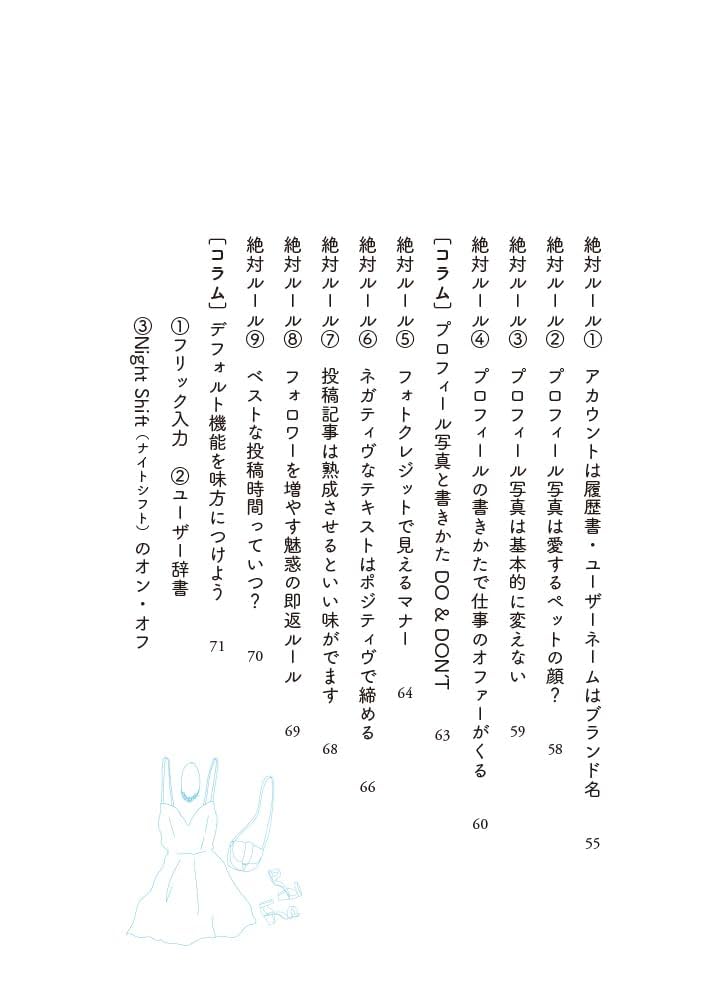 絶対ルール① アカウントは履歴書・ユーザーネームはブランド名 55
絶対ルール② プロフィール写真は愛するペットの顔? 58
絶対ルール③ プロフィール写真は基本的に変えない 59
絶対ルール④ プロフィールの書きかたで仕事のオファーがくる 60
[コラム] プロフィール写真と書きかた DO & DON'T 63
絶対ルール⑤ フォトクレジットで見えるマナー 64
絶対ルール⑥ ネガティヴなテキストはポジティヴで締める 66
絶対ルール⑦ 投稿記事は熟成させるといい味がでます 68
絶対ルール⑧ フォロワーを増やす魅惑の即返ルール 69
絶対ルール⑨ ベストな投稿時間っていつ? 70
[コラム] デフォルト機能を味方につけよう 71
①フリック入力 ②ユーザー辞書
③Night Shift(ナイトシフト)のオン・オフ